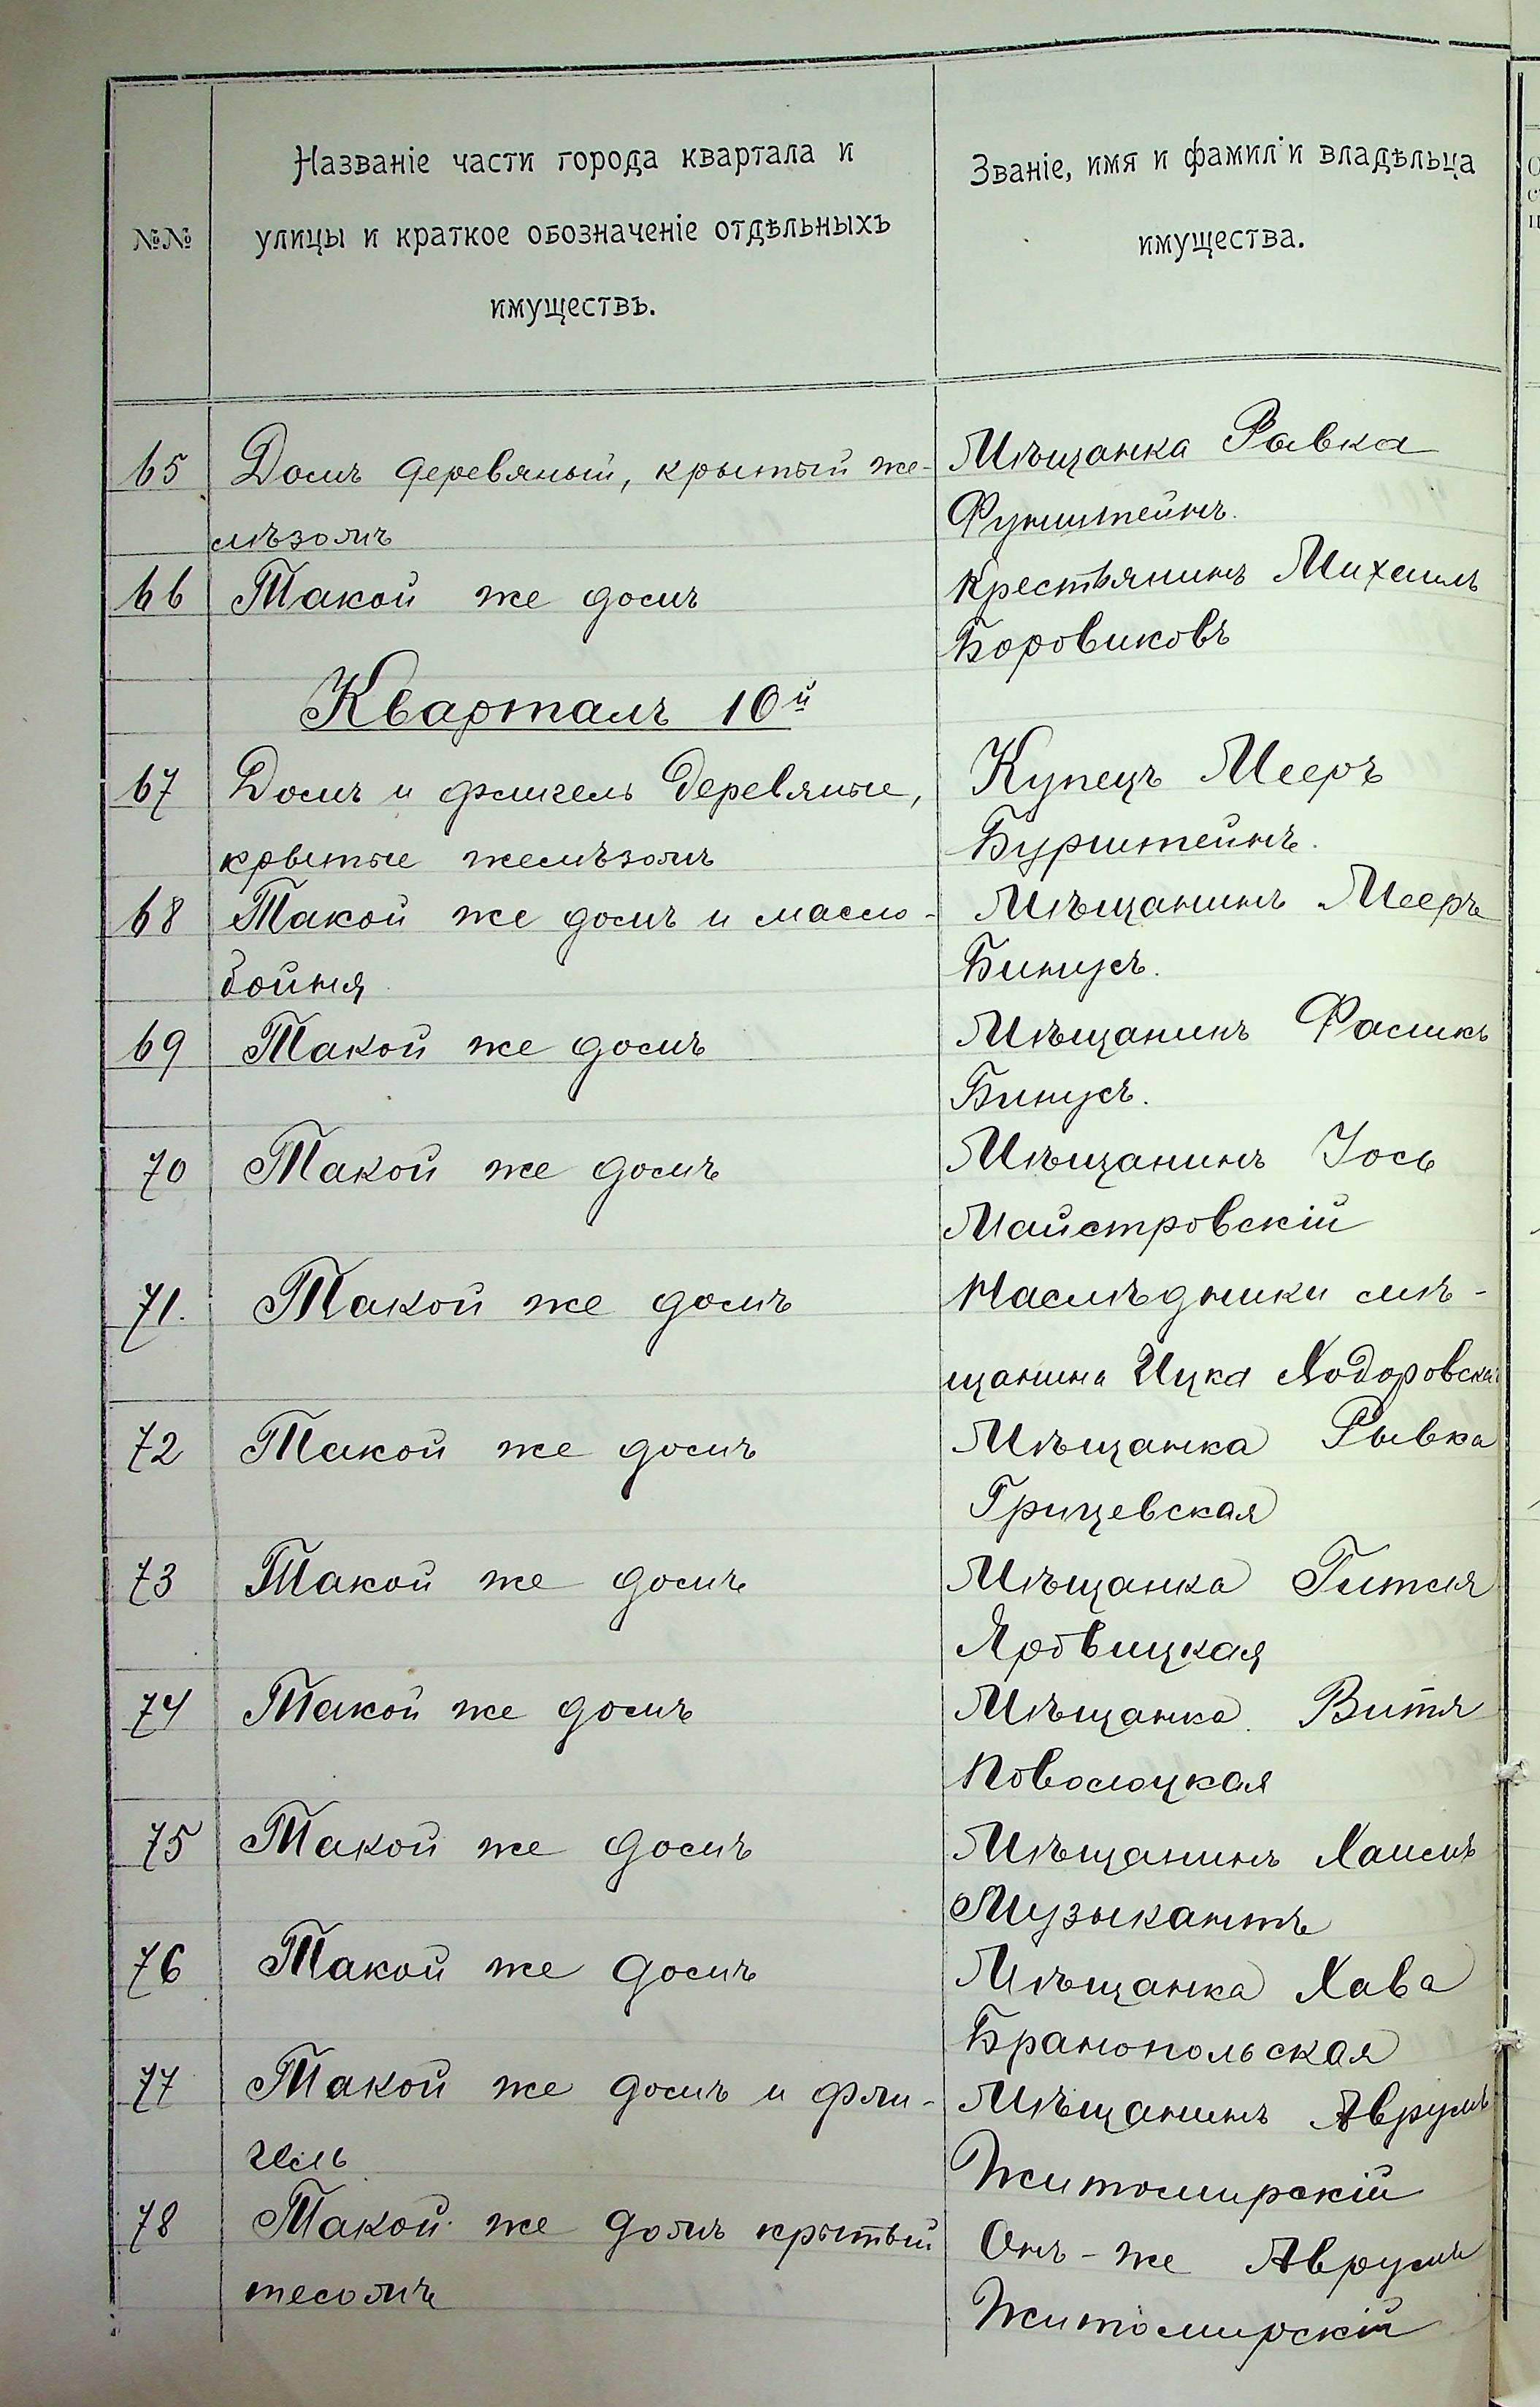 №№
Названіе части города квартала и
улицы и краткое обозначеніе отдѣльныхъ
имуществъ.
Званіе, имя и фамиліи владѣльца
имущества.
65 Домъ деревяный, крытый же-
лѣзомъ
Мѣщанка Ривка
Функштейнъ.
66 Такой же домъ
Крестьянинъ Михаилъ
Боровиковъ
Кварталъ 10й
67 Домъ и флигель деревяные,
крытые желѣзомъ
Купецъ Мееръ
Бурштейнъ.
68 Такой же домъ и масло-
бойня
Мѣщанинъ Мееръ
Бинусъ.
69 Такой же домъ
Мѣщанинъ
Бинусъ.
70 Такой же домъ
Мѣщанинъ Іось
Майстровскій
71. Такой же домъ
Наслѣдники мѣ-
щанина Ицка Ходоровска
72 Такой же домъ
Мѣщанка Рывка
Грицевская
73 Такой же домъ
Мѣщанка Гитля
74 Такой же домъ
Мѣщанка Витя
Новослуцкая
75 Такой же домъ
Мѣщанинъ Хаимъ
Музыкантъ
76 Такой же домъ
Мѣщанка Хава
77 Такой же домъ и фли-
гель
Мѣщанинъ Аврумъ
Житомирскій
78 Такой же домъ крытый
тесомъ
Онъ-же Аврумъ
Житомирскій